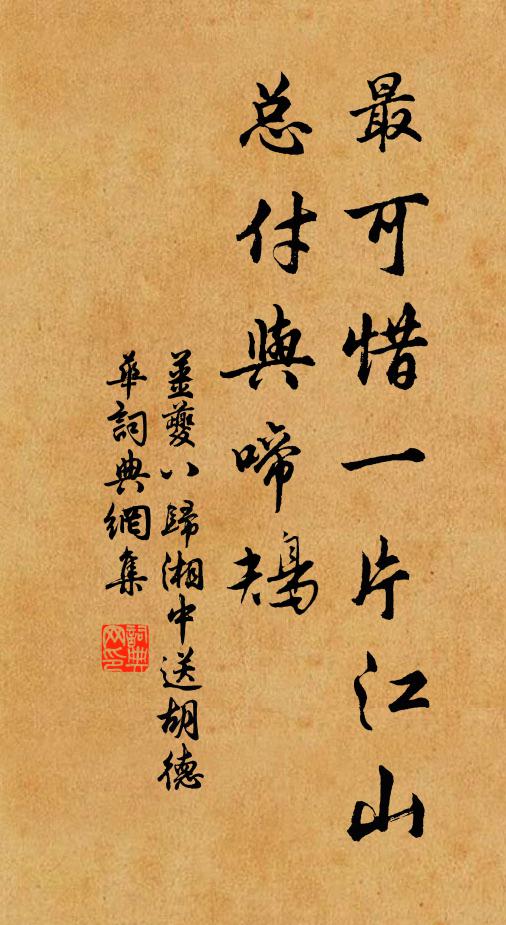 最可惜一片江山
总付與啼鴂
姜夔八歸湘中送胡德
華詞典網集
詞典网印